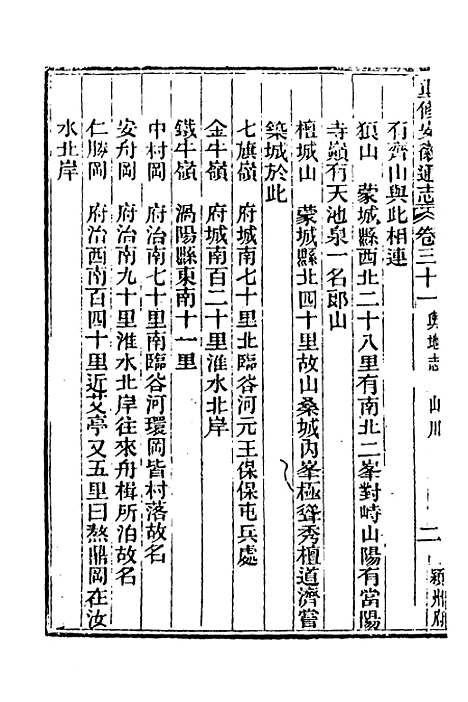 重修安徽通志 卷三十一 輿地志 山川 二 潁州府
有齊山與此相連
狼山 蒙城縣西北二十八里有南北二峯對峙山陽有當陽
寺巔有天池泉一名郎山
檀城山 蒙城縣北四十里故山桑城內峯極聳秀檀道濟嘗
築城於此
七旗嶺 府城南七十里北臨谷河元王保保屯兵處
金牛嶺 府城南百二十里淮水北岸
鐵牛嶺 渦陽縣東南十一里
中村岡 府治南七十里南臨谷河環岡皆村落故名
安舟岡 府治南九十里淮水北岸往來舟楫所泊故名
仁勝岡 府治西南百四十里近艾亭又五里曰熬鼎岡在汝
水北岸